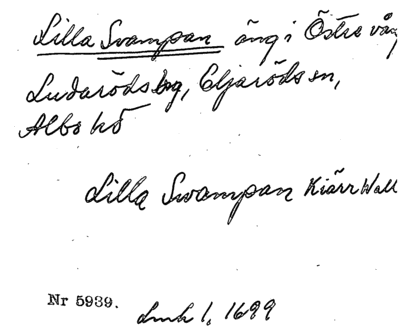 Lilla Svampan äng i Östra vång
Ludarödsby, Eljaröds sn,
Albo hd
Lilla Swampan Kiärr Wall
Nr 5939.
Lmk 1, 1699